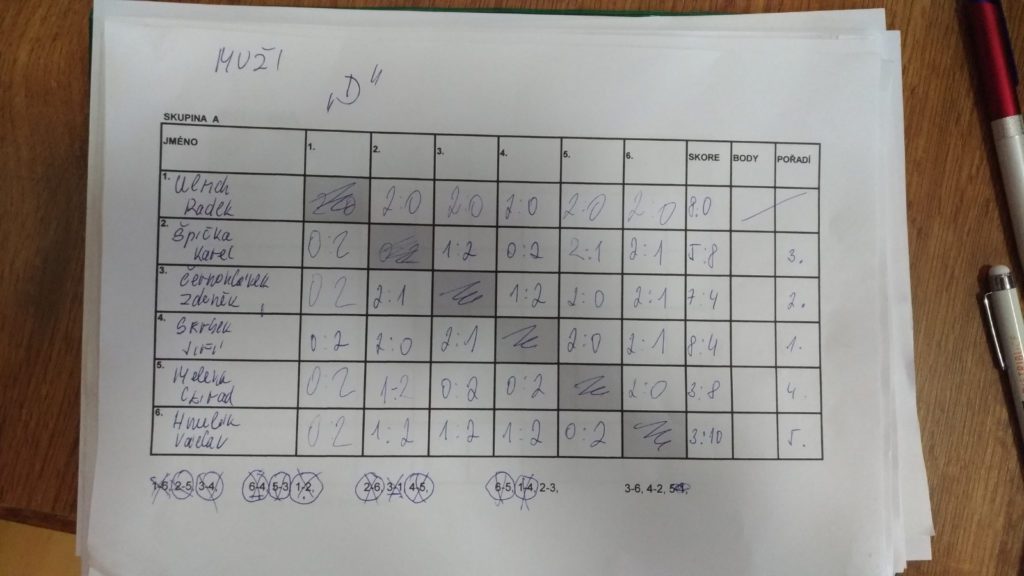 MUŽI
„D"
SKUPINA A
JMÉNO 1. 2. 3. 4. 5. 6. SKORE BODY POŘADÍ
1. Ulrich
Radek 2:0 2:0 2:0 2:0 2:0 8:0
2. Špička
Karel 0:2 1:2 0:2 2:1 2:1 5:8 3.
3. Černohlávek
Zdeněk 0:2 2:1 1:2 2:0 2:1 7:4 2.
4. Skrbek
Jiří 0:2 2:0 2:1 2:0 2:1 8:4 1.
5.
Ctirad 0:2 1:2 0:2 0:2 2:0 3:8 4.
6.
Václav 0:2 1:2 1:2 1:2 0:2 3:10 5.
1-6, 2-5, 3-4, 6-4, 5-3, 1-2, 2-6, 3-1, 4-5, 6-5, 1-4, 2-3, 3-6, 4-2, 5-1,